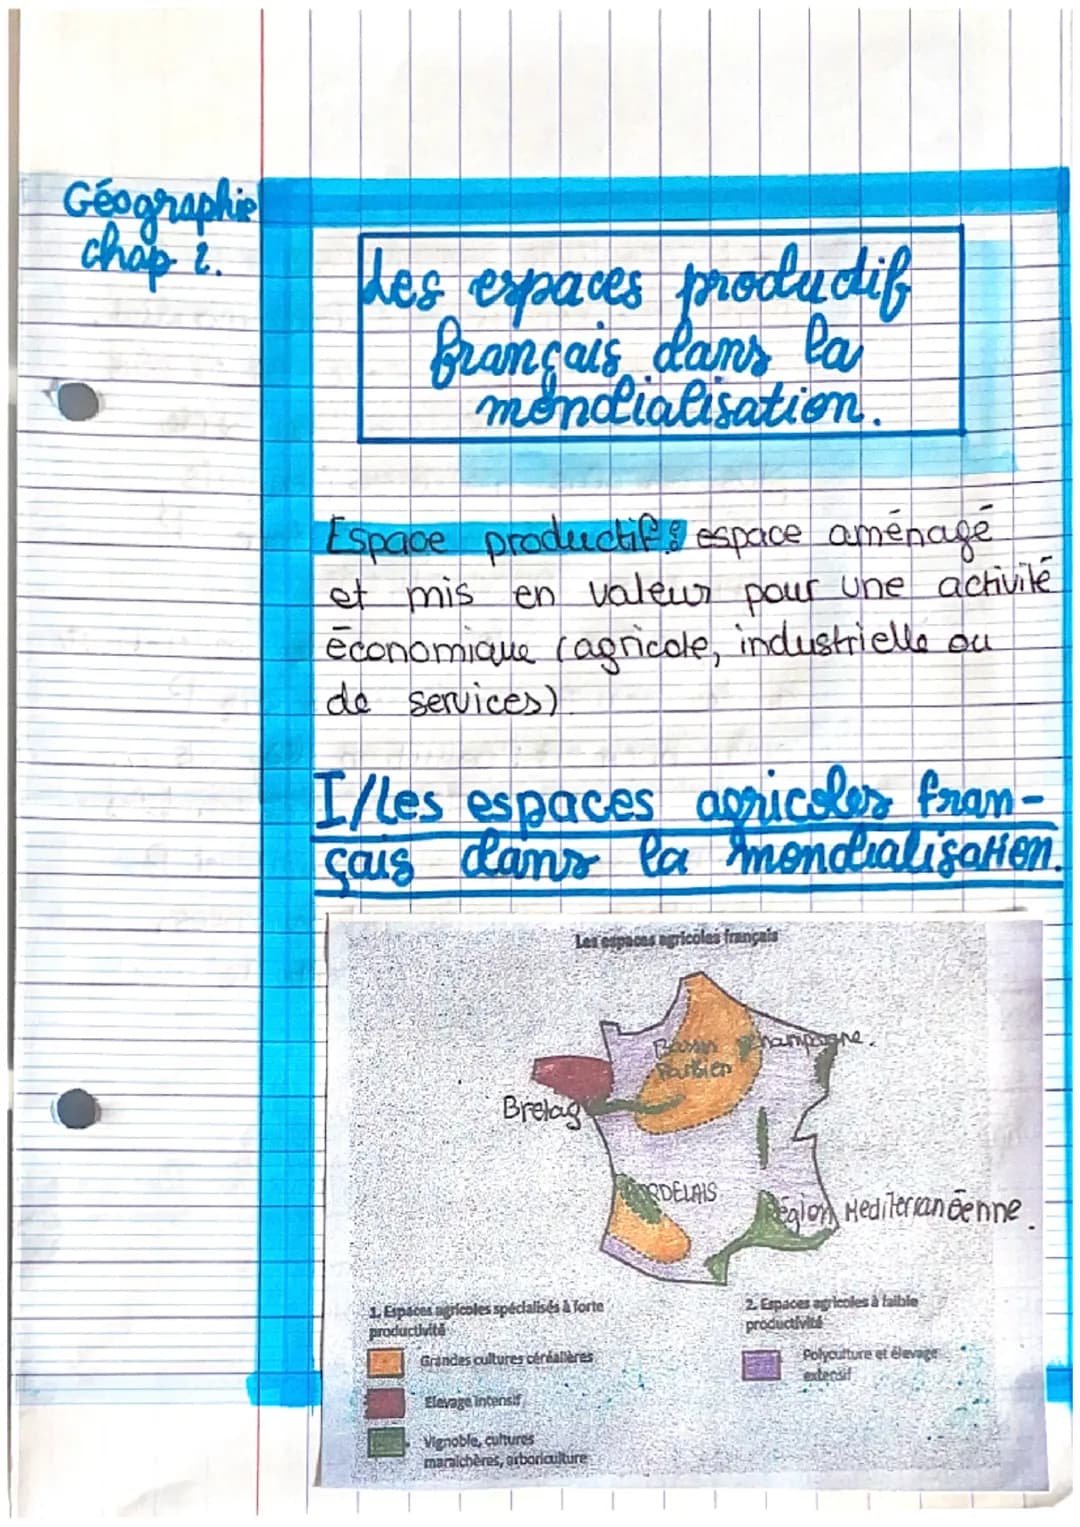 Géographie
chap 2.
Les espaces productif
français dans la
mondialisation.
Espace productif: espace aménagé
et mis en valeur pour une activité
économique (agricole, industrielle ou
de services)
I/Les espaces agricoles fran-
çais dans la mondialisation.
Les espaces agricoles français
Bassin
Parisien
Champagne.
Bretag
BORDELAIS
Région Mediterranéenne.
1. Espaces agricoles spécialisés à forte
productivité
Grandes cultures céréalières
Elevage intensif
Vignoble, cultures
maraîchères, arboriculture
2. Espaces agricoles à faible
productivité
Polyculture et élevage
extensif